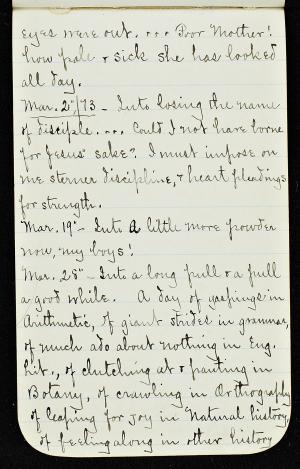 eyes were out. ... Poor Mother!
how pale & sick she has looked
all day.
Mar. 2"/73 – Into losing the name
of disciple.... Could I not have borne
for Jesus' sake? I must impose on
me sterner discipline, & heart pleadings
for strength.
Mar. 19" – Into a little more powder
now, my boys!
Mar. 28" – Into a long pull & a pull
a good while. A day of gaspings in
Arithmetic, of giant strides in grammar,
of much ado about nothing in Eng.
Lit., of clutching at & panting in
Botany, of crawling in Orthography
of leaping for joy in Natural history,
of feeling along in other history